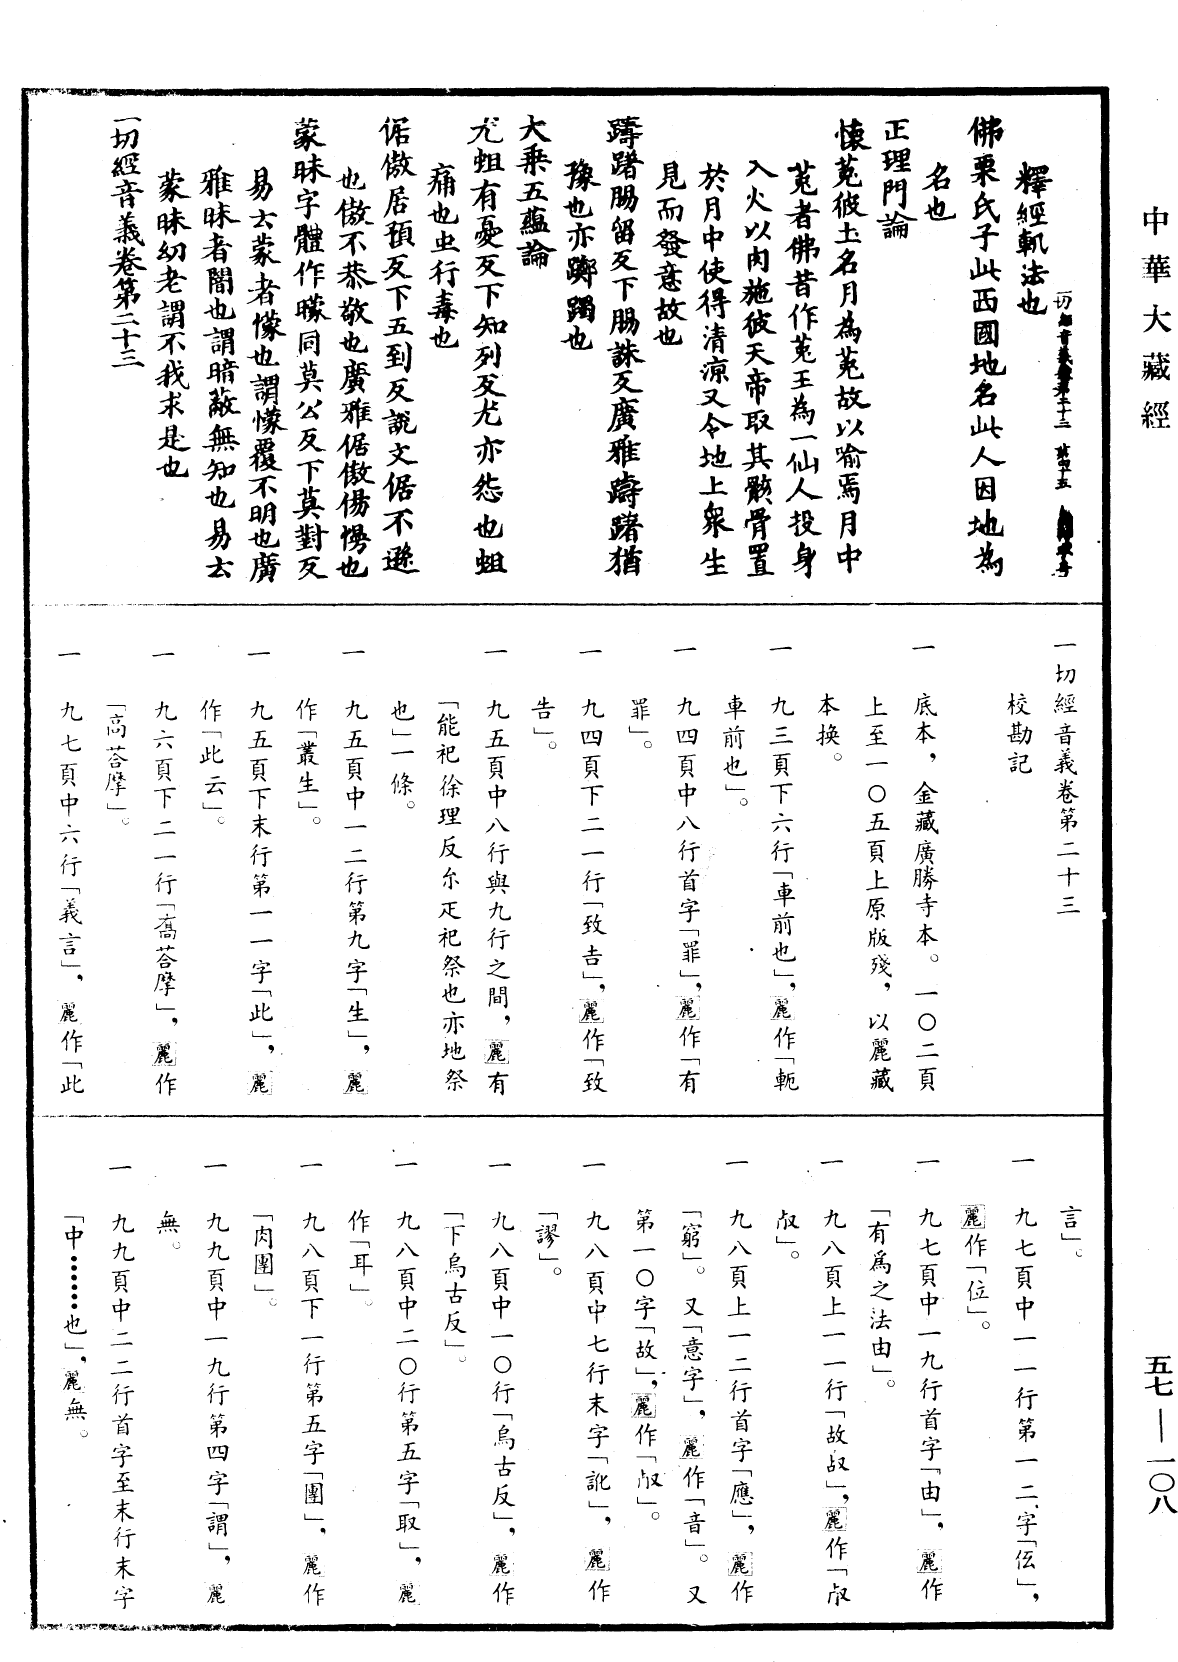 中華大藏經
五七—一〇八
釋經軌法也
佛栗氏子此西國地名此人因地為
名也
正理門論
懷菟彼土名月為菟故以喻焉月中
菟者佛昔作菟王為一仙人投身
入火以肉施彼天帝取其骸骨置
於月中使得清涼又令地上衆生
見而發意故也
躊躇腸留反下腸誅反廣雅躊躇猶
豫也亦躑躅也
大乘五蘊論
尤蛆有憂反下知列反尤亦怨也蛆
痛也虫行毒也
倨傲居預反下五到反說文倨不遜
也傲不恭敬也廣雅倨傲傷慢也
蒙昧字體作矇同莫公反下莫對反
易云蒙者懞也謂懞覆不明也廣
雅昧者闇也謂暗蔽無知也易云
蒙昧幼老謂不我求是也
一切經音義卷第二十三
一切經音義卷第二十三
校勘記
一 底本，金藏廣勝寺本。一〇二頁
上至一〇五頁上原版殘，以麗藏
本換。
一 九三頁下六行「車前也」，麗作「軛
車前也」。
一 九四頁中八行首字「罪」，麗作「有
罪」。
一 九四頁下二一行「致吉」，麗作「致
告」。
一 九五頁中八行與九行之間，麗有
「能祀徐理反尒疋祀祭也亦地祭
也」一條。
一 九五頁中一二行第九字「生」，麗
作「叢生」。
一 九五頁下末行第一一字「此」，麗
作「此云」。
一 九六頁下二一行「喬荅摩」，麗作
「高荅摩」。
一 九七頁中六行「義言」，麗作「此
言」。
一 九七頁中一一行第一二字「伝」，
麗作「位」。
一 九七頁中一九行首字「由」，麗作
「有爲之法由」。
一 九八頁上一一行「故㕞」，麗作「㕞
㕞」。
一 九八頁上一二行首字「應」，麗作
「窮」。又「意字」，麗作「音」。又
第一〇字「故」，麗作「㕞」。
一 九八頁中七行末字「訛」，麗作
「謬」。
一 九八頁中一〇行「烏古反」，麗作
「下烏古反」。
一 九八頁中二〇行第五字「取」，麗
作「耳」。
一 九八頁下一行第五字「團」，麗作
「肉團」。
一 九九頁中一九行第四字「謂」，麗
無。
一 九九頁中二二行首字至末行末字
「中……也」，麗無。